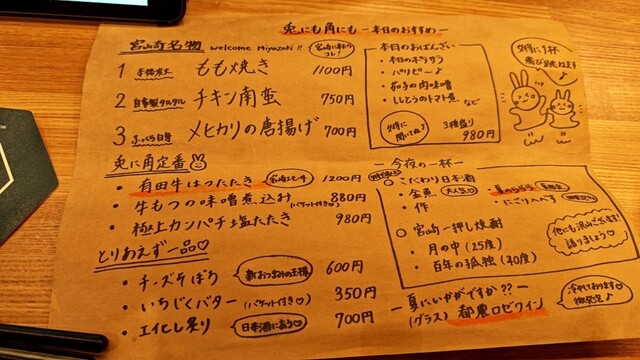 兎にも角にも ー本日のおすすめー
宮崎名物 welcome Miyazaki!! 宮崎に来たらコレ!
1 もも焼き 1100円
2 自家製タルタル チキン南蛮 750円
3 ふっくら白身 メヒカリの唐揚げ 700円
兎に角定番
・有田牛はつたたき 1200円
・牛もつの味噌煮込み (バゲット付き♡) 880円
・極上カンパチ塩たたき 980円
とりあえず一品♡
・チーズそぼろ 新おつまみの王様 600円
・いちじくバター (バゲット付き♡) 350円
・エイヒレ炙り 日本酒に合う♡ 700円
本日のおばんざい
・本日のポテサラ
・バリピー♪
・茄子の肉味噌
・ししとうのトマト煮 など
3種盛り
980円
ー今夜の一杯ー
○こだわり日本酒
・金魚 大人気♡
・作
・にごり
○宮崎一押し焼酎
・月の中 (25度)
・百年の孤独 (40度)
他にも沢山ございます!
語りましょう♡
ー夏にいかがですか??ー
(グラス) 都農ロゼワイン
冷やしております♡
微発泡♪